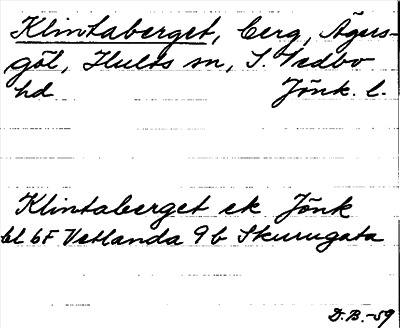 Klintaberget, berg, Ägers-
göl, Hults sn, S. Vedbo
hd Jönk. l.
Klintaberget ek Jönk
bl 6F Vetlanda 9b Skurugata
D.B.-59